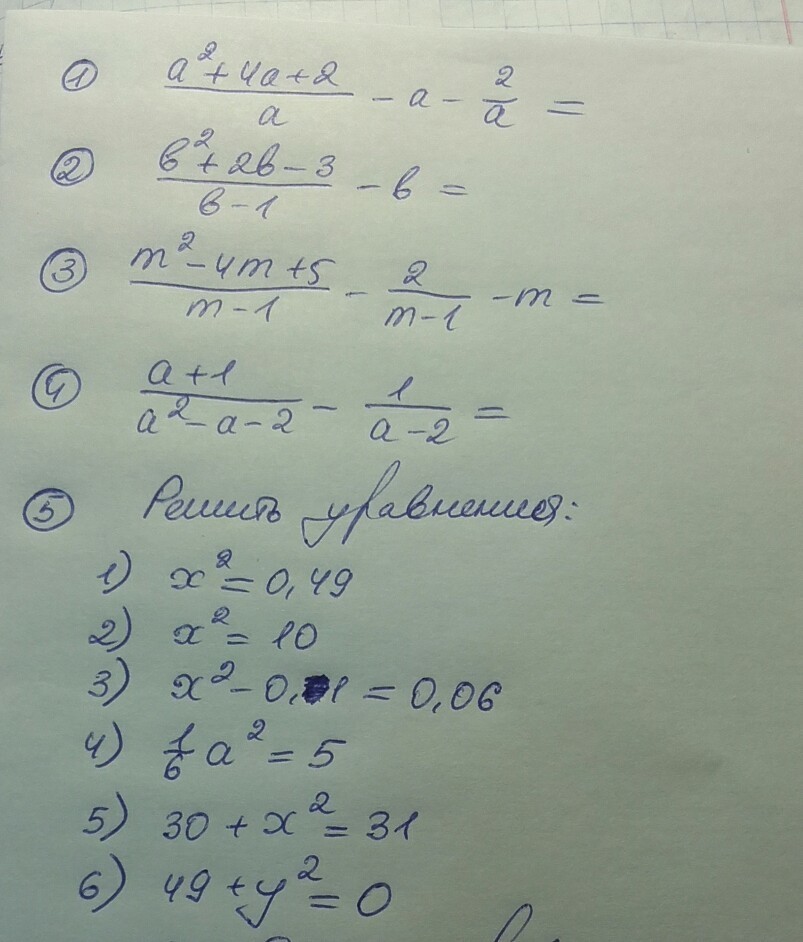 ① (a²+4a+2)/a − a − 2/a =
② (в²+2в−3)/(в−1) − в =
③ (m²−4m+5)/(m−1) − 2/(m−1) − m =
④ (a+1)/(a²−a−2) − 1/(a−2) =
⑤ Решить уравнения:
1) x² = 0,49
2) x² = 10
3) x² − 0,1 = 0,06
4) 1/6 a² = 5
5) 30 + x² = 31
6) 49 + y² = 0